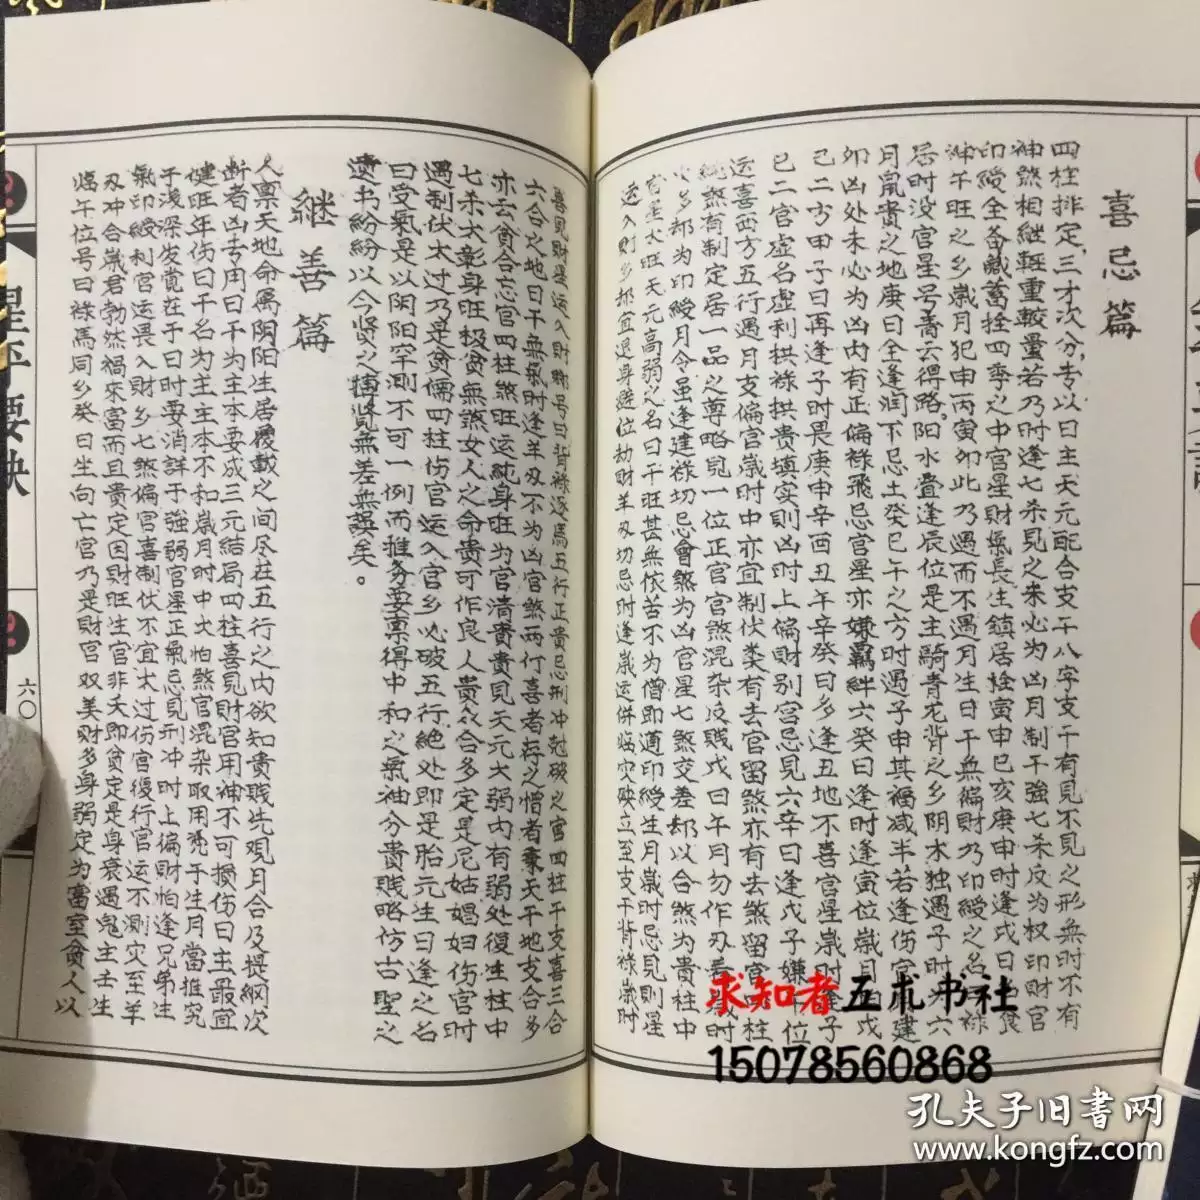 喜忌篇
四柱排定,三才次分,专以日主天元配合支干八字支干有見不見之形無时不有
神煞相継輕重較量若乃时逢七杀見之未必为凶月制干強七杀反为权印財官
印綬全备藏蓄拴四季之中官星財氣長生鎮居拴寅申巳亥庚申时逢戊日
神干旺之乡歲月犯甲丙寅卯此乃遇而不遇月生日干無偏財乃印綬之名
居时没官星号青云得路,阳水疊逢辰位是壬騎青龙背之乡阴木独遇子时为六
月鼠貴之地庚日全逢润下忌壬癸巳午之方时遇子申其福减半若逢伤官月建
如凶处未必为凶内有正偏祿飛忌官星亦嫌羈絆六癸日逢时逢寅位歲月怕戊
己二方甲子日再逢子时畏庚申辛酉丑午辛癸日多逢丑地不喜官星歲时逢子
巳二宮虚名虚利拱禄拱貴填实則凶时上偏財别宮忌見六辛日逢戊子嫌午位
运喜西方五行遇月支偏官歲时中亦宜制伏类有去官留煞亦有去煞留官四柱
純煞有制定居一品之尊略見一位正官官煞混杂反贱戊日午月勿作刃看歲时
火多却为印綬月令虽逢建禄切忌會煞为凶官星七煞交差却以合煞为貴柱中
官星太旺天元高弱之名日干旺甚無依若不为僧即道印綬生月歲时忌見財星
运入財乡却宜退身避位劫財羊刃切忌时逢歲运併临灾殃立至支干背禄歲时
喜見財星运入財鄉号曰背禄逐馬五行正貴忌刑冲尅破之宮四柱干支喜三合
六合之地日干無氣时逢羊刃不为凶官煞两何喜者存之憎者棄天干地支合多
亦云貪合忘官四柱煞旺运純身旺为官清貴見天元太弱内有弱处復生柱中
七杀太彰身旺极贫無煞女人之命貴可作良人貴众合多定是尼姑娼妇伤官时
遇制伏太过乃是贫儒四柱伤官运入官乡必破五行绝处即是胎元生日逢之名
曰受氣是以阴阳罕測不可一例而推务要禀得中和之氣神分貴賤略仿古聖之
遗书紛紛以今贤之博覽無差無誤矣。
継善篇
人禀天地命属阴阳生居覆載之间尽在五行之内欲知貴賤先观月令及提綱次
断者凶专用日干为主本要成三元結局四柱喜見財官用神不可損伤日主最宜
健旺年伤日干名为主本不和歲月时中大怕煞官混杂取用凭于生月當推究
于浅深发覚在于日时要消詳于強弱官星正氣忌見刑冲时上偏財怕逢兄弟生
氣印綬利官运畏入財乡七煞偏官喜制伏不宜太过伤官復行官运不測灾至羊
刃冲合歲君勃然禍來富而且貴定因財旺生官非夭即贫定是身衰遇鬼主壬生
临午位号曰禄馬同乡癸日生向亡宮乃是財官双美財多身弱定为富室貪人以
六〇
求知者五术书社
15078560868
孔夫子旧書网
www.kongfz.com